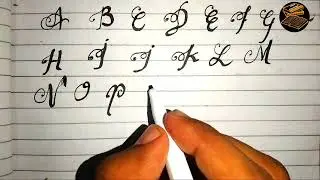 A B C D E F G
H I J K L M
N O P